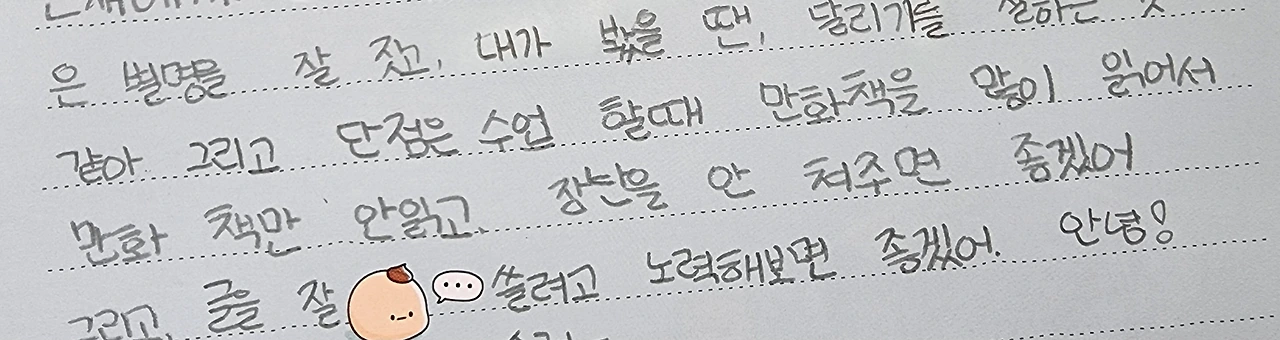 은 별명을 잘 짓고, 내가 봤을 땐, 달리기를 잘하는
같아. 그리고 단점은 수업 할때 만화책을 많이 읽어서
만화 책만 안읽고, 장난을 안 쳐주면 좋겠어
그리고, 글을 잘 쓸려고 노력해보면 좋겠어. 안녕!